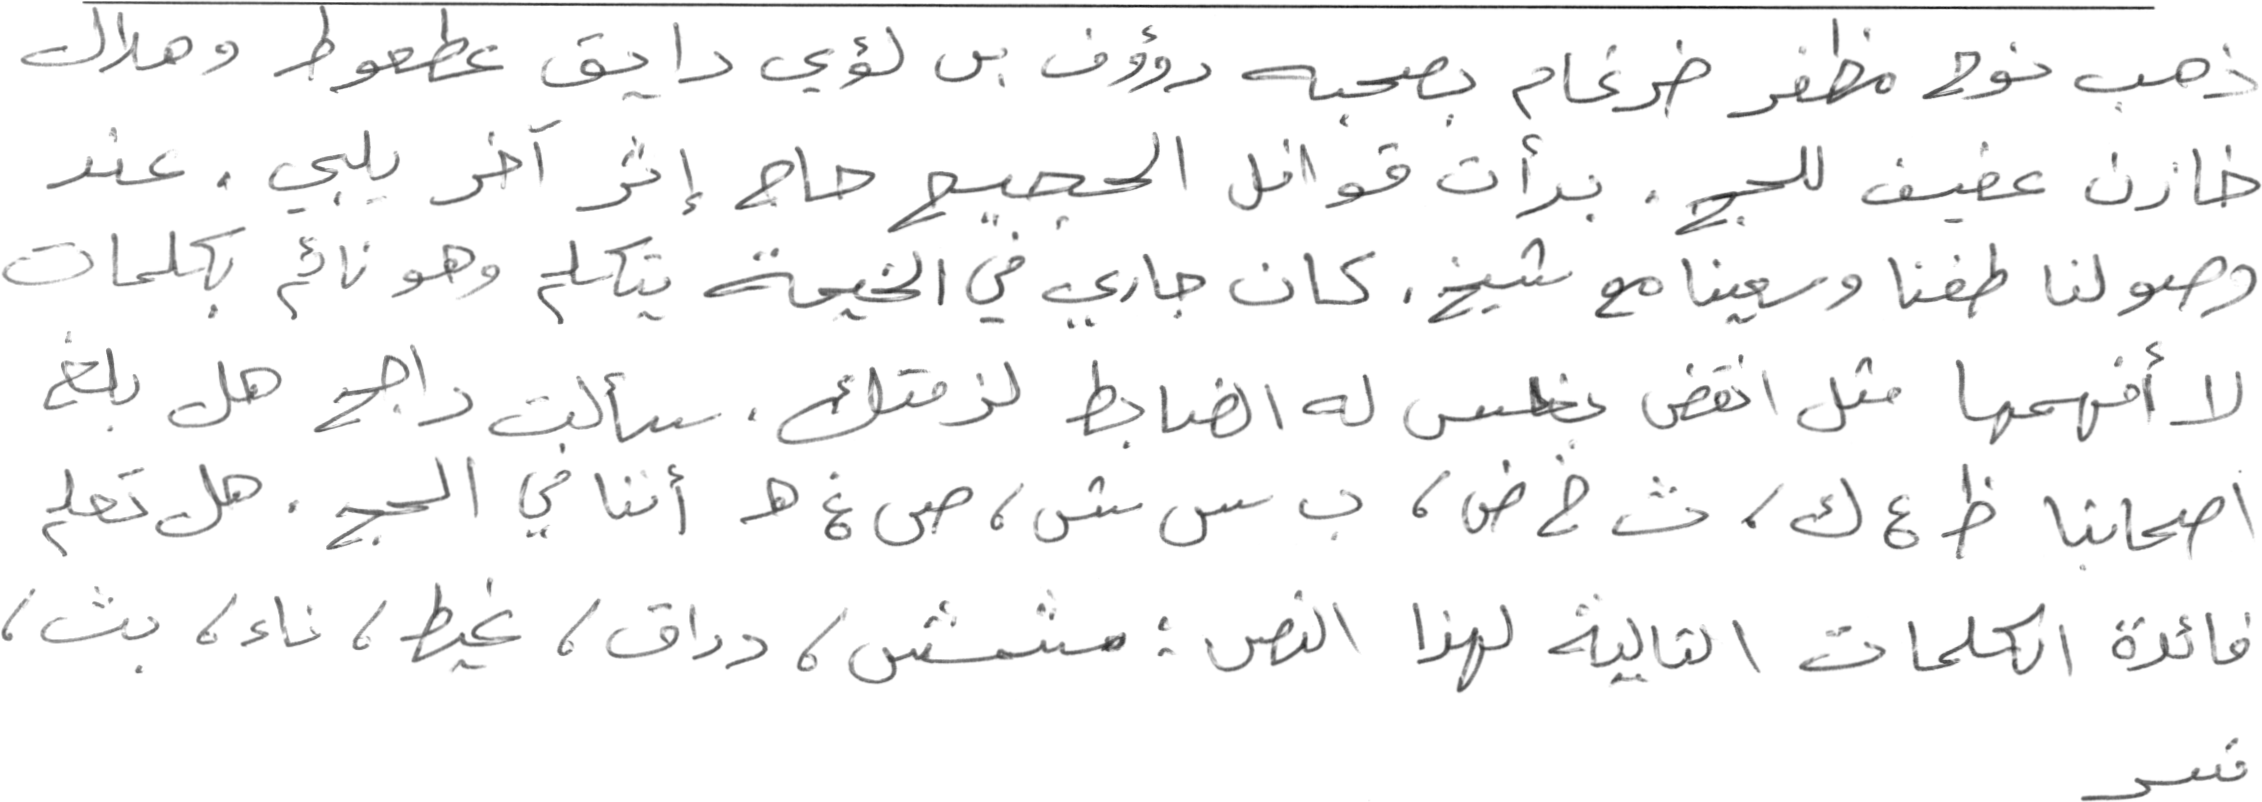 ذهب نوح مظفر ضرغام بصحبه رؤوف بن لؤي رايق عطعوط وهلال
خازن عفيف للحج. بدأت قوافل الحجيج حاج إثر آخر يلبي. عند
وصولنا طفنا وسعينا مع شيخ. كان جاري في الخيمة يتكلم وهو نائم بكلمات
لا أفهمها مثل انقض بظلس له الضابط لزمتك. سألت راجح هل بلغ
اصحابنا ظ ع ك، ث خ ض، ب س ش، ص غ هـ أننا في الحج. هل تعلم
فائدة الكلمات التالية لهذا النص: مشمش، دراق، غيط، ناء، بث،
نسر